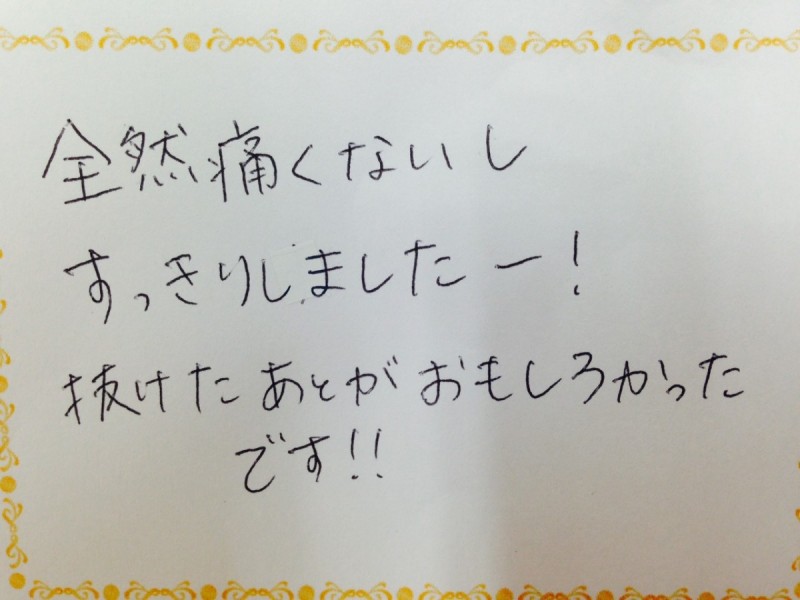 全然痛くないし
すっきりしましたー!
抜けたあとがおもしろかった
です!!